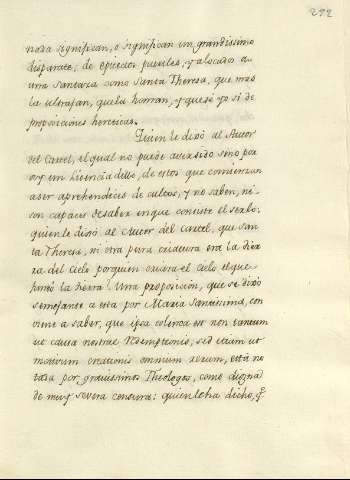 292
nada significan, o significan un grandissimo
disparate; de epitectos pueriles, y alocados a
una Santaza como Santa Theresa, que mas
la ultrajan, que la honran, y que sé yo si de
proposiciones hereticas.
Quien le dixó al Autor
del Cartel, el qual no puede aver sido sino por
algun Licenciadello, de estos que comienzan
a ser aprehendices de cultos, y no saben, ni
son capaces de saber en que consiste el serlo;
quien le dixó al Autor del Cartel, que San-
ta Theresa, ni otra pura criatura era la dicha
del Cielo por quien criara el cielo el que
formó la tierra? Una proposicion, que se dixó
semejante a esta por Maria Santissima, con
viene a saber, que ipsa colenda est non tantum
ut causa nostrae Redemptionis, sed etiam ut
motivum creationis omnium rerum, está no
tada por gravissimos Theologos, como digna
de muy severa censura: quien lo ha dicho, q.